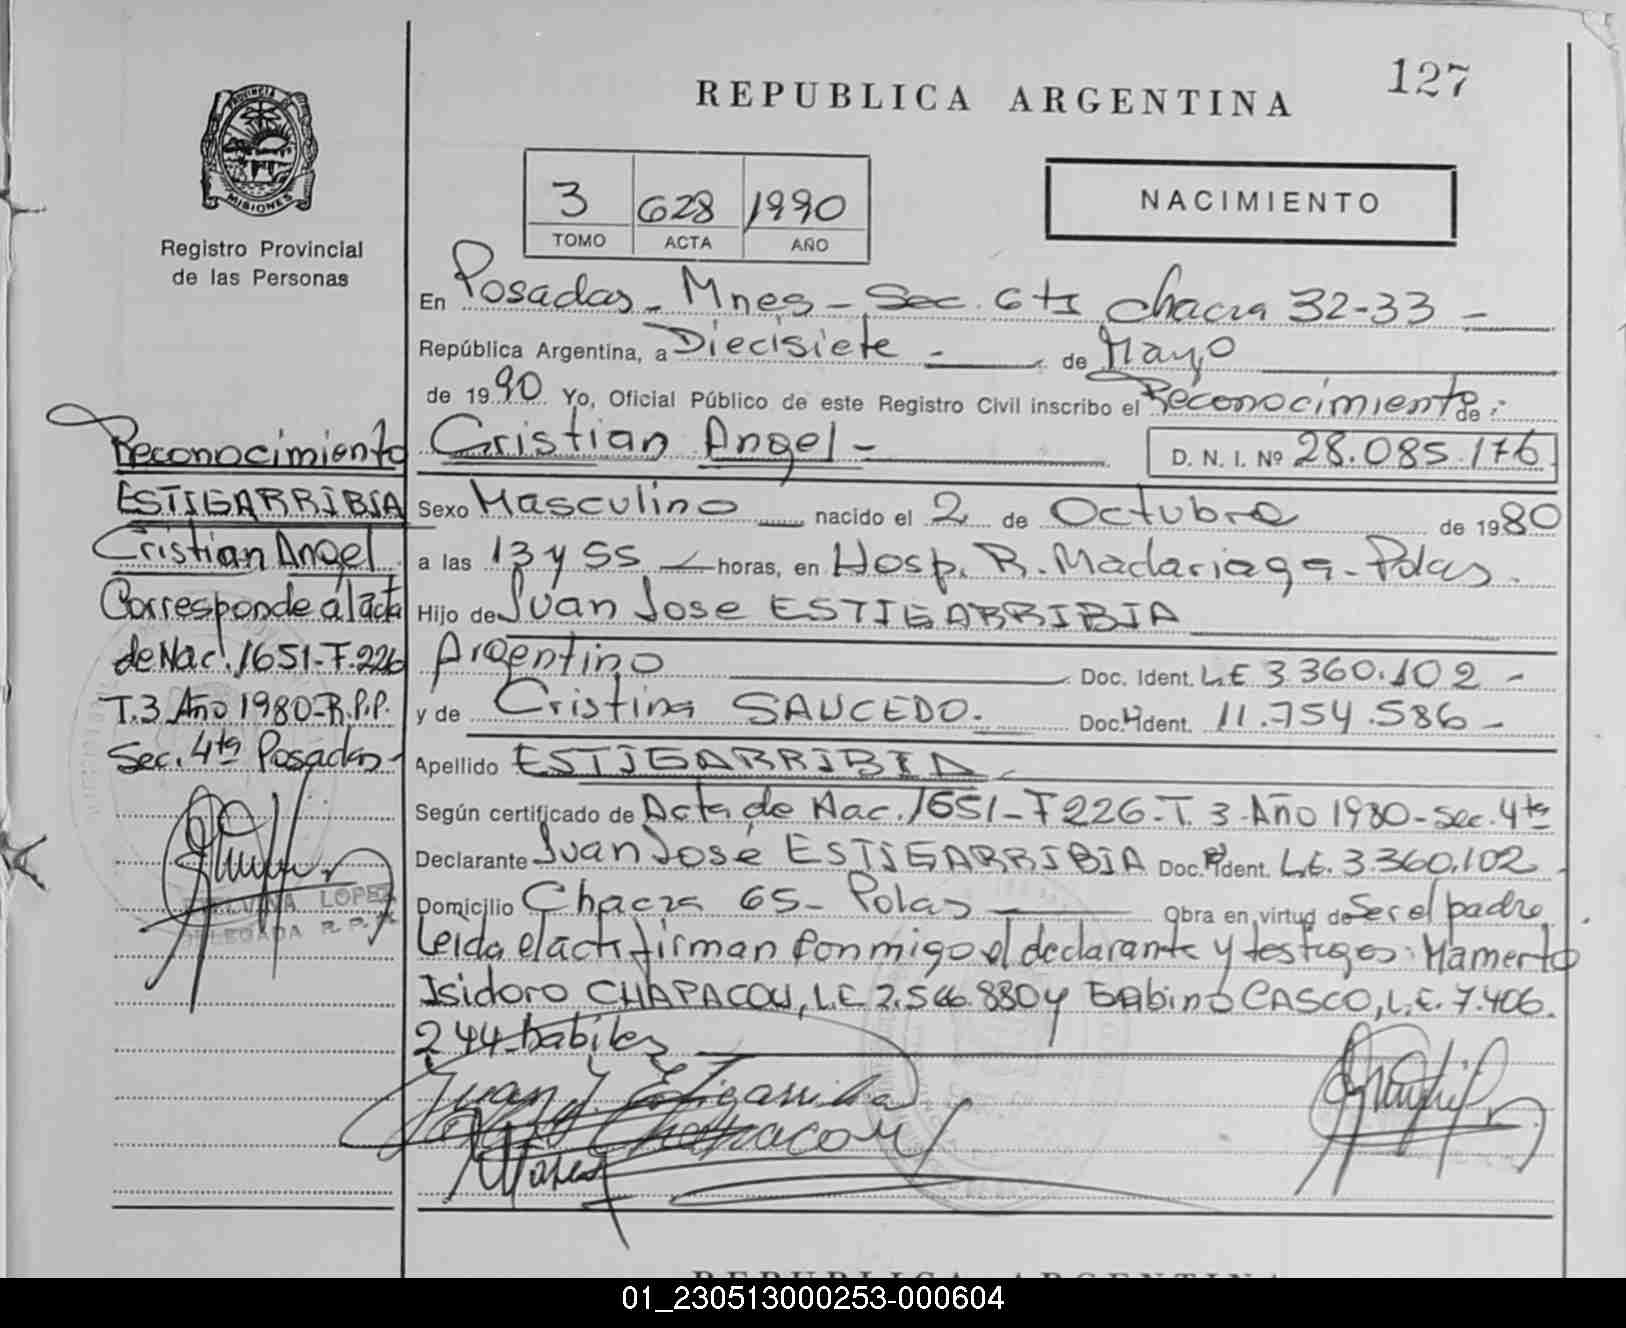 127
REPUBLICA ARGENTINA
PROVINCIA DE
MISIONES
Registro Provincial
de las Personas
3 628 1990
TOMO ACTA AÑO
NACIMIENTO
En Posadas - Mnes - Sec. 6ta Chacra 32-33 -
República Argentina, a Diecisiete - de Mayo
de 1990 Yo, Oficial Público de este Registro Civil inscribo el Reconocimiento de:
Cristian Angel - D. N. I. Nº 28.085.176
Sexo Masculino nacido el 2 de Octubre de 1980
a las 13 y 55 horas, en Hosp. R. Madariaga - Pdas.
Hijo de Juan Jose ESTIGARRIBIA
Argentino Doc. Ident. L.E 3.360.102 -
y de Cristina SAUCEDO. Doc. Ident. 11.754.586 -
Apellido ESTIGARRIBIA
Según certificado de Acta de Nac. 1651 - F 226 - T. 3 - Año 1980 - Sec. 4ta
Declarante Juan José ESTIGARRIBIA Doc. Ident. L.E. 3.360.102
Domicilio Chacra 65 - Pdas Obra en virtud de Ser el padre.
Leida el acta firman conmigo el declarante y testigos: Mamerto
Isidoro CHAPACOU, L.E 2.566.880 y Gabino CASCO, L.E. 7.406.
244 - habiles
Juan J. Estigarribia
Chapacou
Reconocimiento
ESTIGARRIBIA
Cristian Angel
Corresponde al acta
de Nac. 1651 - F. 226
T. 3 Año 1980 - R.P.P.
Sec. 4ta Posadas -
LOPEZ
DELEGADA R. P. P.
REPUBLICA ARGENTINA
01_230513000253-000604